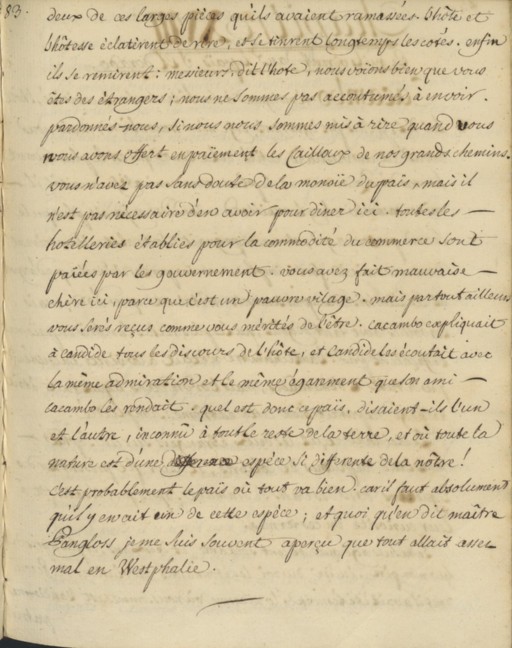 83.
deux de ces larges pièces qu'ils avaient ramassées. l'hôte et
l'hôtesse éclatèrent de rire, et se tinrent longtemps les cotés. enfin
ils se remirent: messieurs, dit l'hote, nous voïons bien que vous
êtes des étrangers; nous ne sommes pas accoutumés à en voir.
pardonnés-nous, si nous nous sommes mis à rire quand vous
nous avons offert en païement les Cailloux de nos grands chemins.
vous n'avez pas sans doute de la monoïe du païs, mais il
n'est pas nécessaire d'en avoir pour diner ici. toutes les —
hotelleries établies pour la commodité du commerce sont
païées par les gouvernement. vous avez fait mauvaise —
chère ici, parce que c'est un pauvre vilage. mais par tout ailleurs
vous serés reçus comme vous mérités de l'être. cacambo expliquait
à candide tous les discours de l'hôte, et Candide les écoutait avec
la même admiration et le même égarement que son ami —
cacambo les rendait. quel est donc ce païs, disaient-ils l'un
et l'autre, inconnû à tout le reste de la terre, et où toute la
nature est d'une espèce si differente de la nôtre!
C'est probablement le païs où tout va bien. car il faut absolument
qu'il y en ait un de cette espèce; et quoi qu'en dit maître
Pangloss je me suis souvent aperçu que tout allait assez
mal en Westphalie.